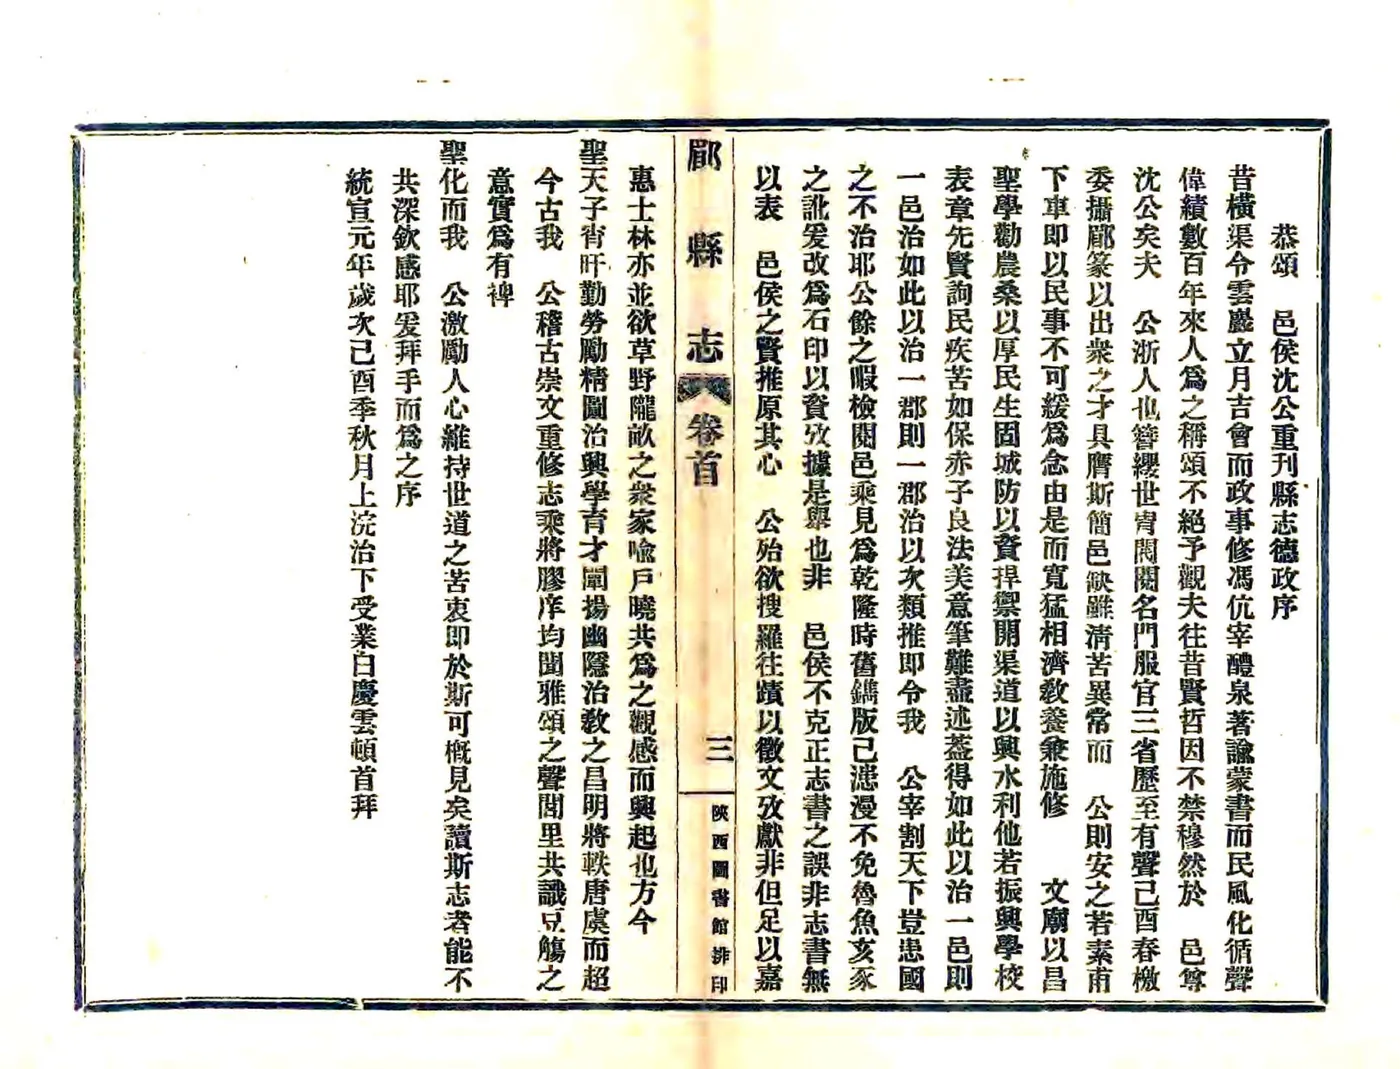 恭頌　邑侯沈公重刊縣志德政序
昔橫渠令雲巖立月吉會而政事修馮伉宰醴泉著諭蒙書而民風化循聲
偉績數百年來人爲之稱頌不絕予觀夫往昔賢哲因不禁穆然於　邑尊
沈公矣夫　公浙人也簪纓世胄閥閱名門服官三省歷至有聲己酉春檄
委攝郿篆以出衆之才具膺斯簡邑缺雖清苦異常而　公則安之若素甫
下車即以民事不可緩爲念由是而寬猛相濟敎養兼施修　　文廟以昌
聖學勸農桑以厚民生固城防以資捍禦開渠道以興水利他若振興學校
表章先賢詢民疾苦如保赤子良法美意筆難盡述蓋得如此以治一邑則
一邑治如此以治一郡則一郡治以次類推即令我　公宰割天下豈患國
之不治耶公餘之暇檢閱邑乘見爲乾隆時舊鐫版已漶漫不免魯魚亥豕
之訛爰改爲石印以資攷據是舉也非　邑侯不克正志書之誤非志書無
以表　邑侯之賢推原其心　公殆欲搜羅往蹟以徵文攷獻非但足以嘉
郿縣志　卷首　三　陝西圖書館排印
惠士林亦並欲草野隴畝之衆家喩戶曉共爲之觀感而興起也方今
聖天子宵旰勤勞勵精圖治興學育才闡揚幽隱治敎之昌明將軼唐虞而超
今古我　公稽古崇文重修志乘將膠庠均聞雅頌之聲閭里共識豆觴之
意實爲有裨
聖化而我　公激勵人心維持世道之苦衷即於斯可槪見矣讀斯志者能不
共深欽感耶爰拜手而爲之序
統宣元年歲次己酉季秋月上浣治下受業白慶雲頓首拜